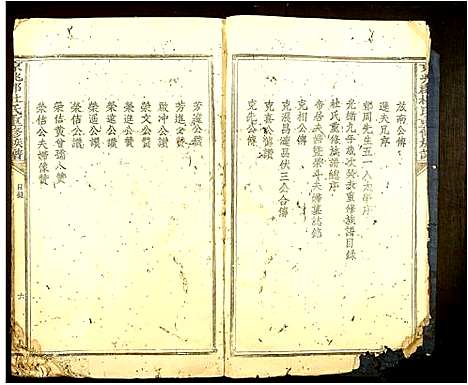 茲南公傳
遜夫兄序
鄧周先生五一入太學序
光緒九年歲次癸未重修族譜目錄
杜氏重修族譜總序
帝居夫婦榮斗夫婦墓誌銘
克相公傳
克還昌熾晨伏三公合傳
克喜公傳
克先公傳
芳遠公讚
芳進公讚
啟冲公讚
榮文公讚
榮進公讚
榮遠公讚
榮佶公讚
榮佶黃曾孺人贊
榮佶公夫婦像贊
京兆郡杜氏重修族譜
目錄
六